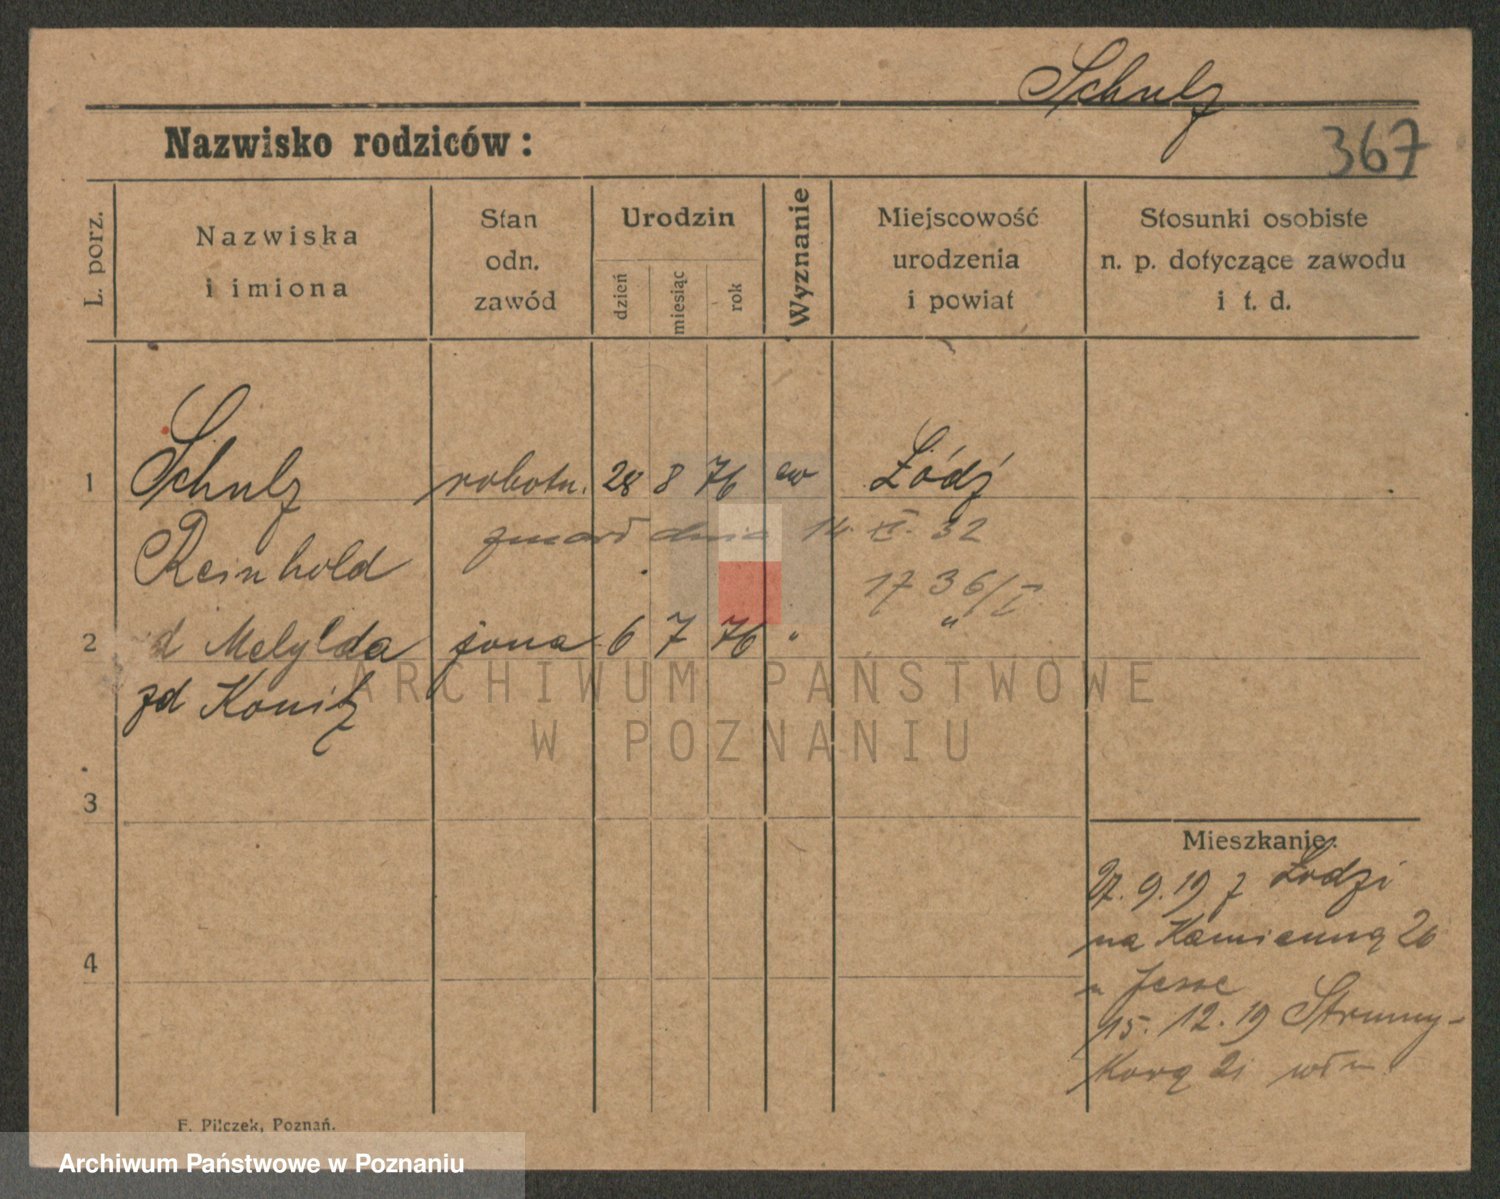 Schulz
Nazwisko rodziców:
367
L. porz.
Nazwiska
i imiona
Stan
odn.
zawód
Urodzin
dzień
miesiąc
rok
Wyznanie
Miejscowość
urodzenia
i powiat
Stosunki osobiste
n. p. dotyczące zawodu
i t. d.
1 Schulz robotn. 28 8 76 ew Łódź
Reinhold zmarł dnia 14. XI. 32
17 36/I
2 d Melylda żona 6 7 76 " "
zd Konitz
3
4
Mieszkanie:
27.9.19 z Łodzi
na Kamienną 26
u Jesse
15.12.19 Strumy-
kową 21
F. Pilczek, Poznań.
ARCHIWUM PAŃSTWOWE
W POZNANIU
Archiwum Państwowe w Poznaniu